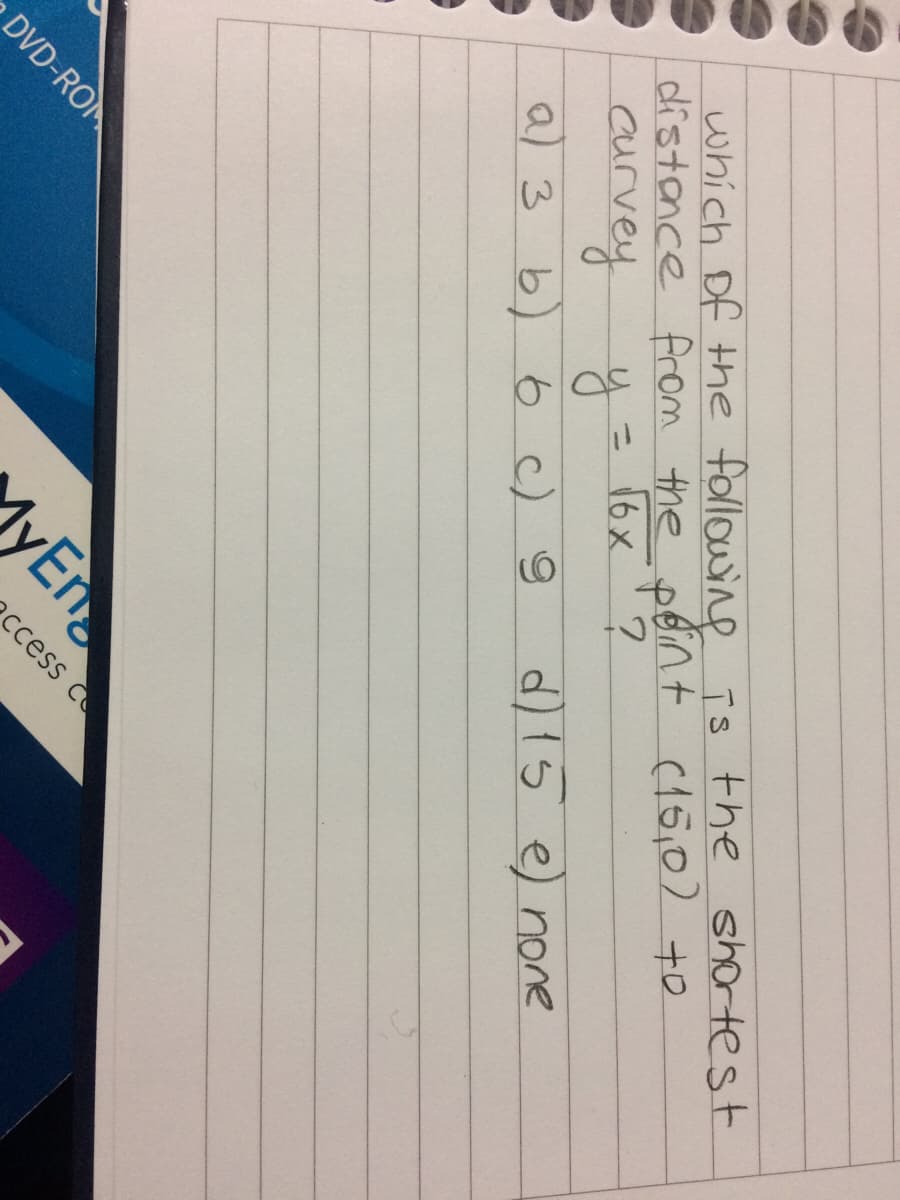 which of the following is the shortest
distance from the point (15,0) to
curvey y = √6x ?
a) 3 b) 6 c) 9 d) 15 e) none
DVD-ROM
MyEng
access co